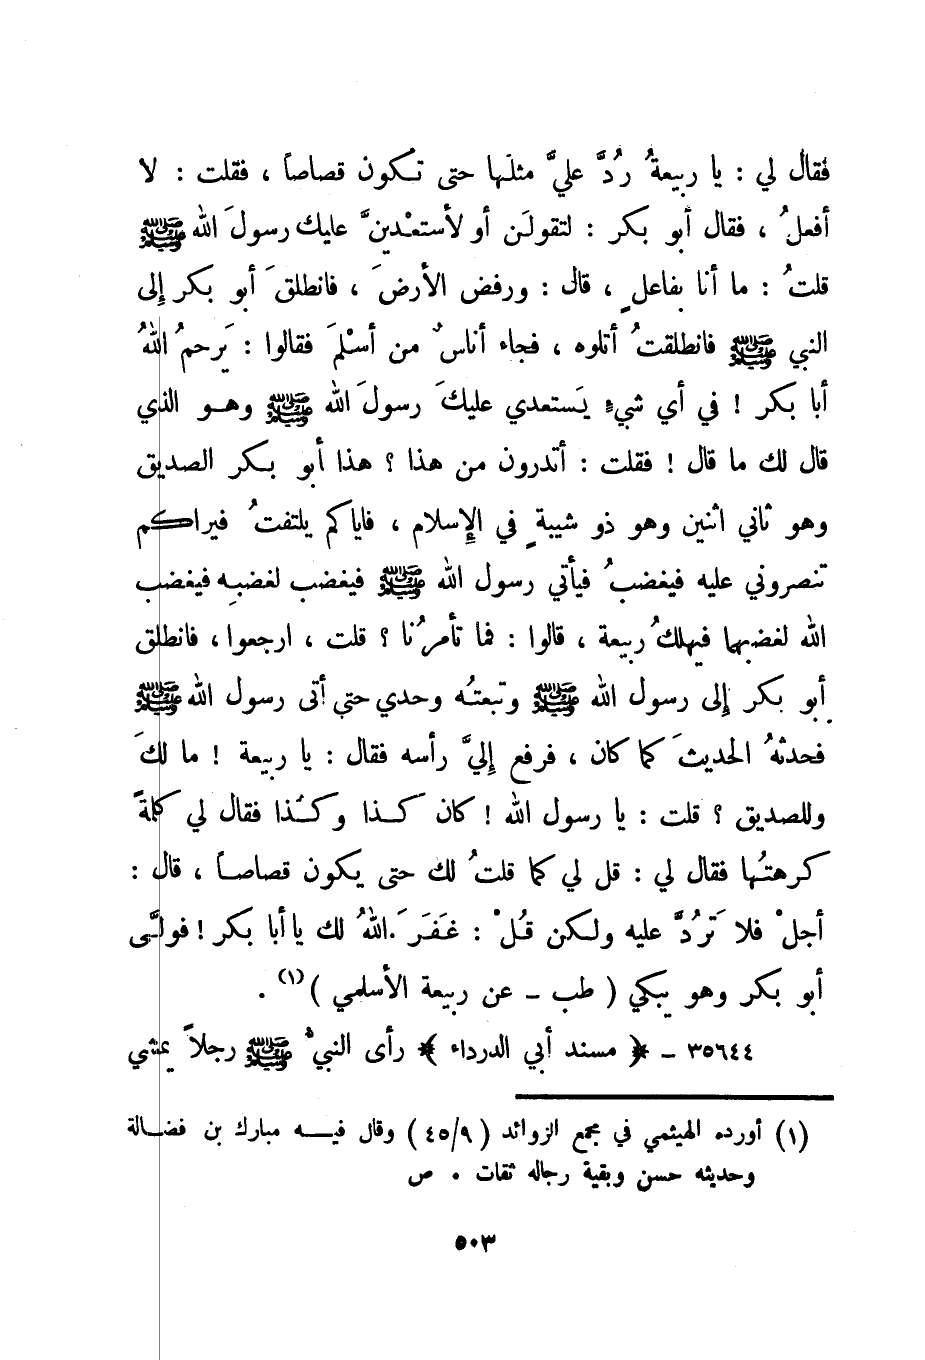 فقال لي : يا ربيعةُ رُدَّ عليَّ مثلَها حتى تكون قصاصاً ، فقلت : لا
أفعلُ ، فقال أبو بكر : لتقولَن أو لأستعْدينَّ عليك رسولَ الله ﷺ
قلتُ : ما أنا بفاعلٍ ، قال : ورفض الأرضَ ، فانطلقَ أبو بكر إلى
النبي ﷺ فانطلقتُ أتلوه ، فجاء أناسٌ من أسْلمَ فقالوا : يَرحمُ اللهُ
أبا بكر ! في أي شيءٍ يَستعدي عليكَ رسولَ الله ﷺ وهو الذي
قال لك ما قال ! فقلت : أتدرون من هذا ؟ هذا أبو بكر الصديق
وهو ثاني اثنين وهو ذو شيبةٍ في الإسلام ، فاياكم يلتفتُ فيراكم
تنصروني عليه فيغضبُ فيأتي رسول الله ﷺ فيغضب لغضبِه فيغضب
الله لغضبِها فيهلكُ ربيعة ، قالوا : فما تأمرُنا ؟ قلت ، ارجعوا ، فانطلق
أبو بكر إلى رسول الله ﷺ وتبعتُه وحدي حتى أتى رسول الله ﷺ
فحدثهُ الحديثَ كما كان ، فرفع إليَّ رأسه فقال : يا ربيعة ! ما لكَ
وللصديق ؟ قلت : يا رسول الله ! كان كذا وكذا فقال لي كلمةً
كرهتُها فقال لي : قل لي كما قلتُ لك حتى يكون قصاصاً ، قال :
أجلْ فلا تَردَّ عليه ولكن قُلْ : غَفَرَ اللهُ لك يا أبا بكر ! فولَّى
أبو بكر وهو يبكي ( طب - عن ربيعة الأسلمي )(١) .
٣٥٦٤٤ - ﴿ مسند أبي الدرداء ﴾ رأى النبيُّ ﷺ رجلاً يمشي
(١) أورده الهيثمي في مجمع الزوائد ( ٤٥/٩ ) وقال فيه مبارك بن فضالة
وحديثه حسن وبقية رجاله ثقات . ص
٥٠٣